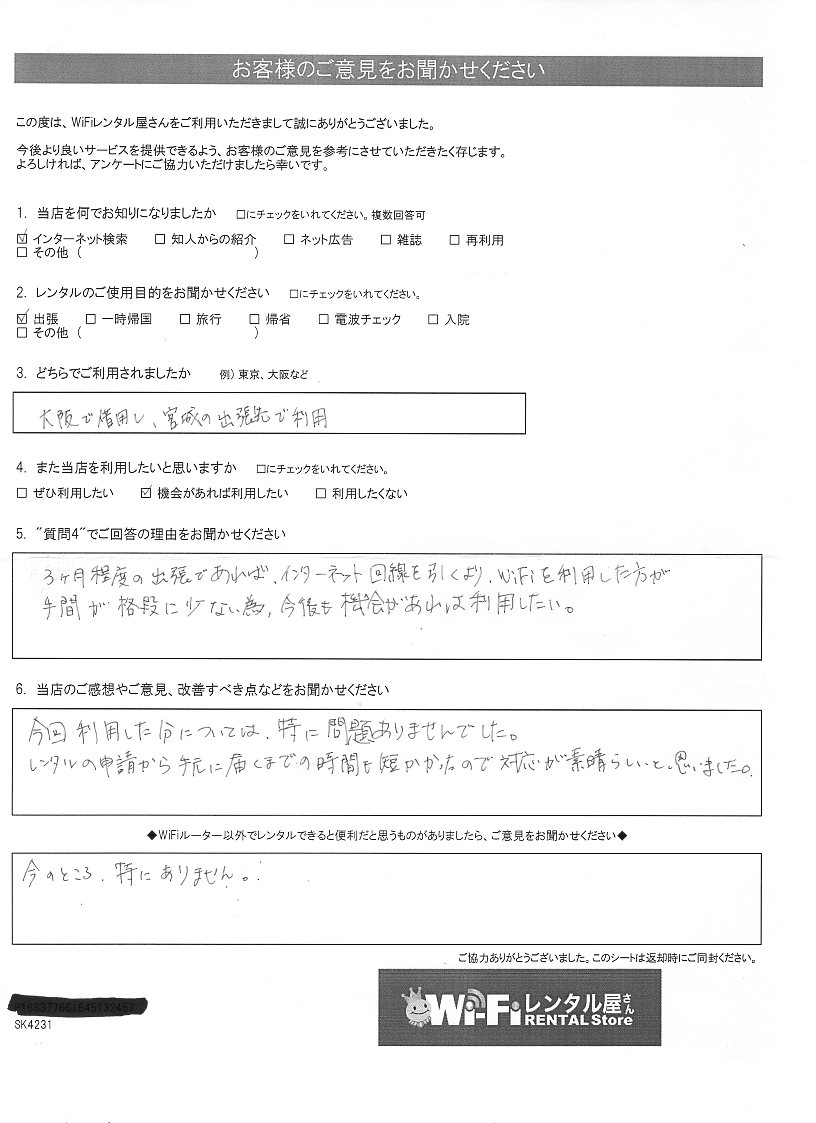 お客様のご意見をお聞かせください
この度は、WiFiレンタル屋さんをご利用いただきまして誠にありがとうございました。
今後より良いサービスを提供できるよう、お客様のご意見を参考にさせていただきたく存じます。
よろしければ、アンケートにご協力いただけましたら幸いです。
1. 当店を何でお知りになりましたか □にチェックをいれてください。複数回答可
☑ インターネット検索 □ 知人からの紹介 □ ネット広告 □ 雑誌 □ 再利用
□ その他 ( )
2. レンタルのご使用目的をお聞かせください □にチェックをいれてください。
☑ 出張 □ 一時帰国 □ 旅行 □ 帰省 □ 電波チェック □ 入院
□ その他 ( )
3. どちらでご利用されましたか 例) 東京、大阪など
大阪で借用し、宮城の出張先で利用
4. また当店を利用したいと思いますか □にチェックをいれてください。
□ ぜひ利用したい ☑ 機会があれば利用したい □ 利用したくない
5. "質問4"でご回答の理由をお聞かせください
3ヶ月程度の出張であれば、インターネット回線を引くより、WiFiを利用した方が
手間が格段に少ない為、今後も機会があれば利用したい。
6. 当店のご感想やご意見、改善すべき点などをお聞かせください
今回利用した分については、特に問題ありませんでした。
レンタルの申請から手元に届くまでの時間も短かかったので対応が素晴らしいと思いました。
◆WiFiルーター以外でレンタルできると便利だと思うものがありましたら、ご意見をお聞かせください◆
今のところ、特にありません。
ご協力ありがとうございました。このシートは返却時にご同封ください。
SK4231
Wi-Fiレンタル屋さん
RENTAL Store